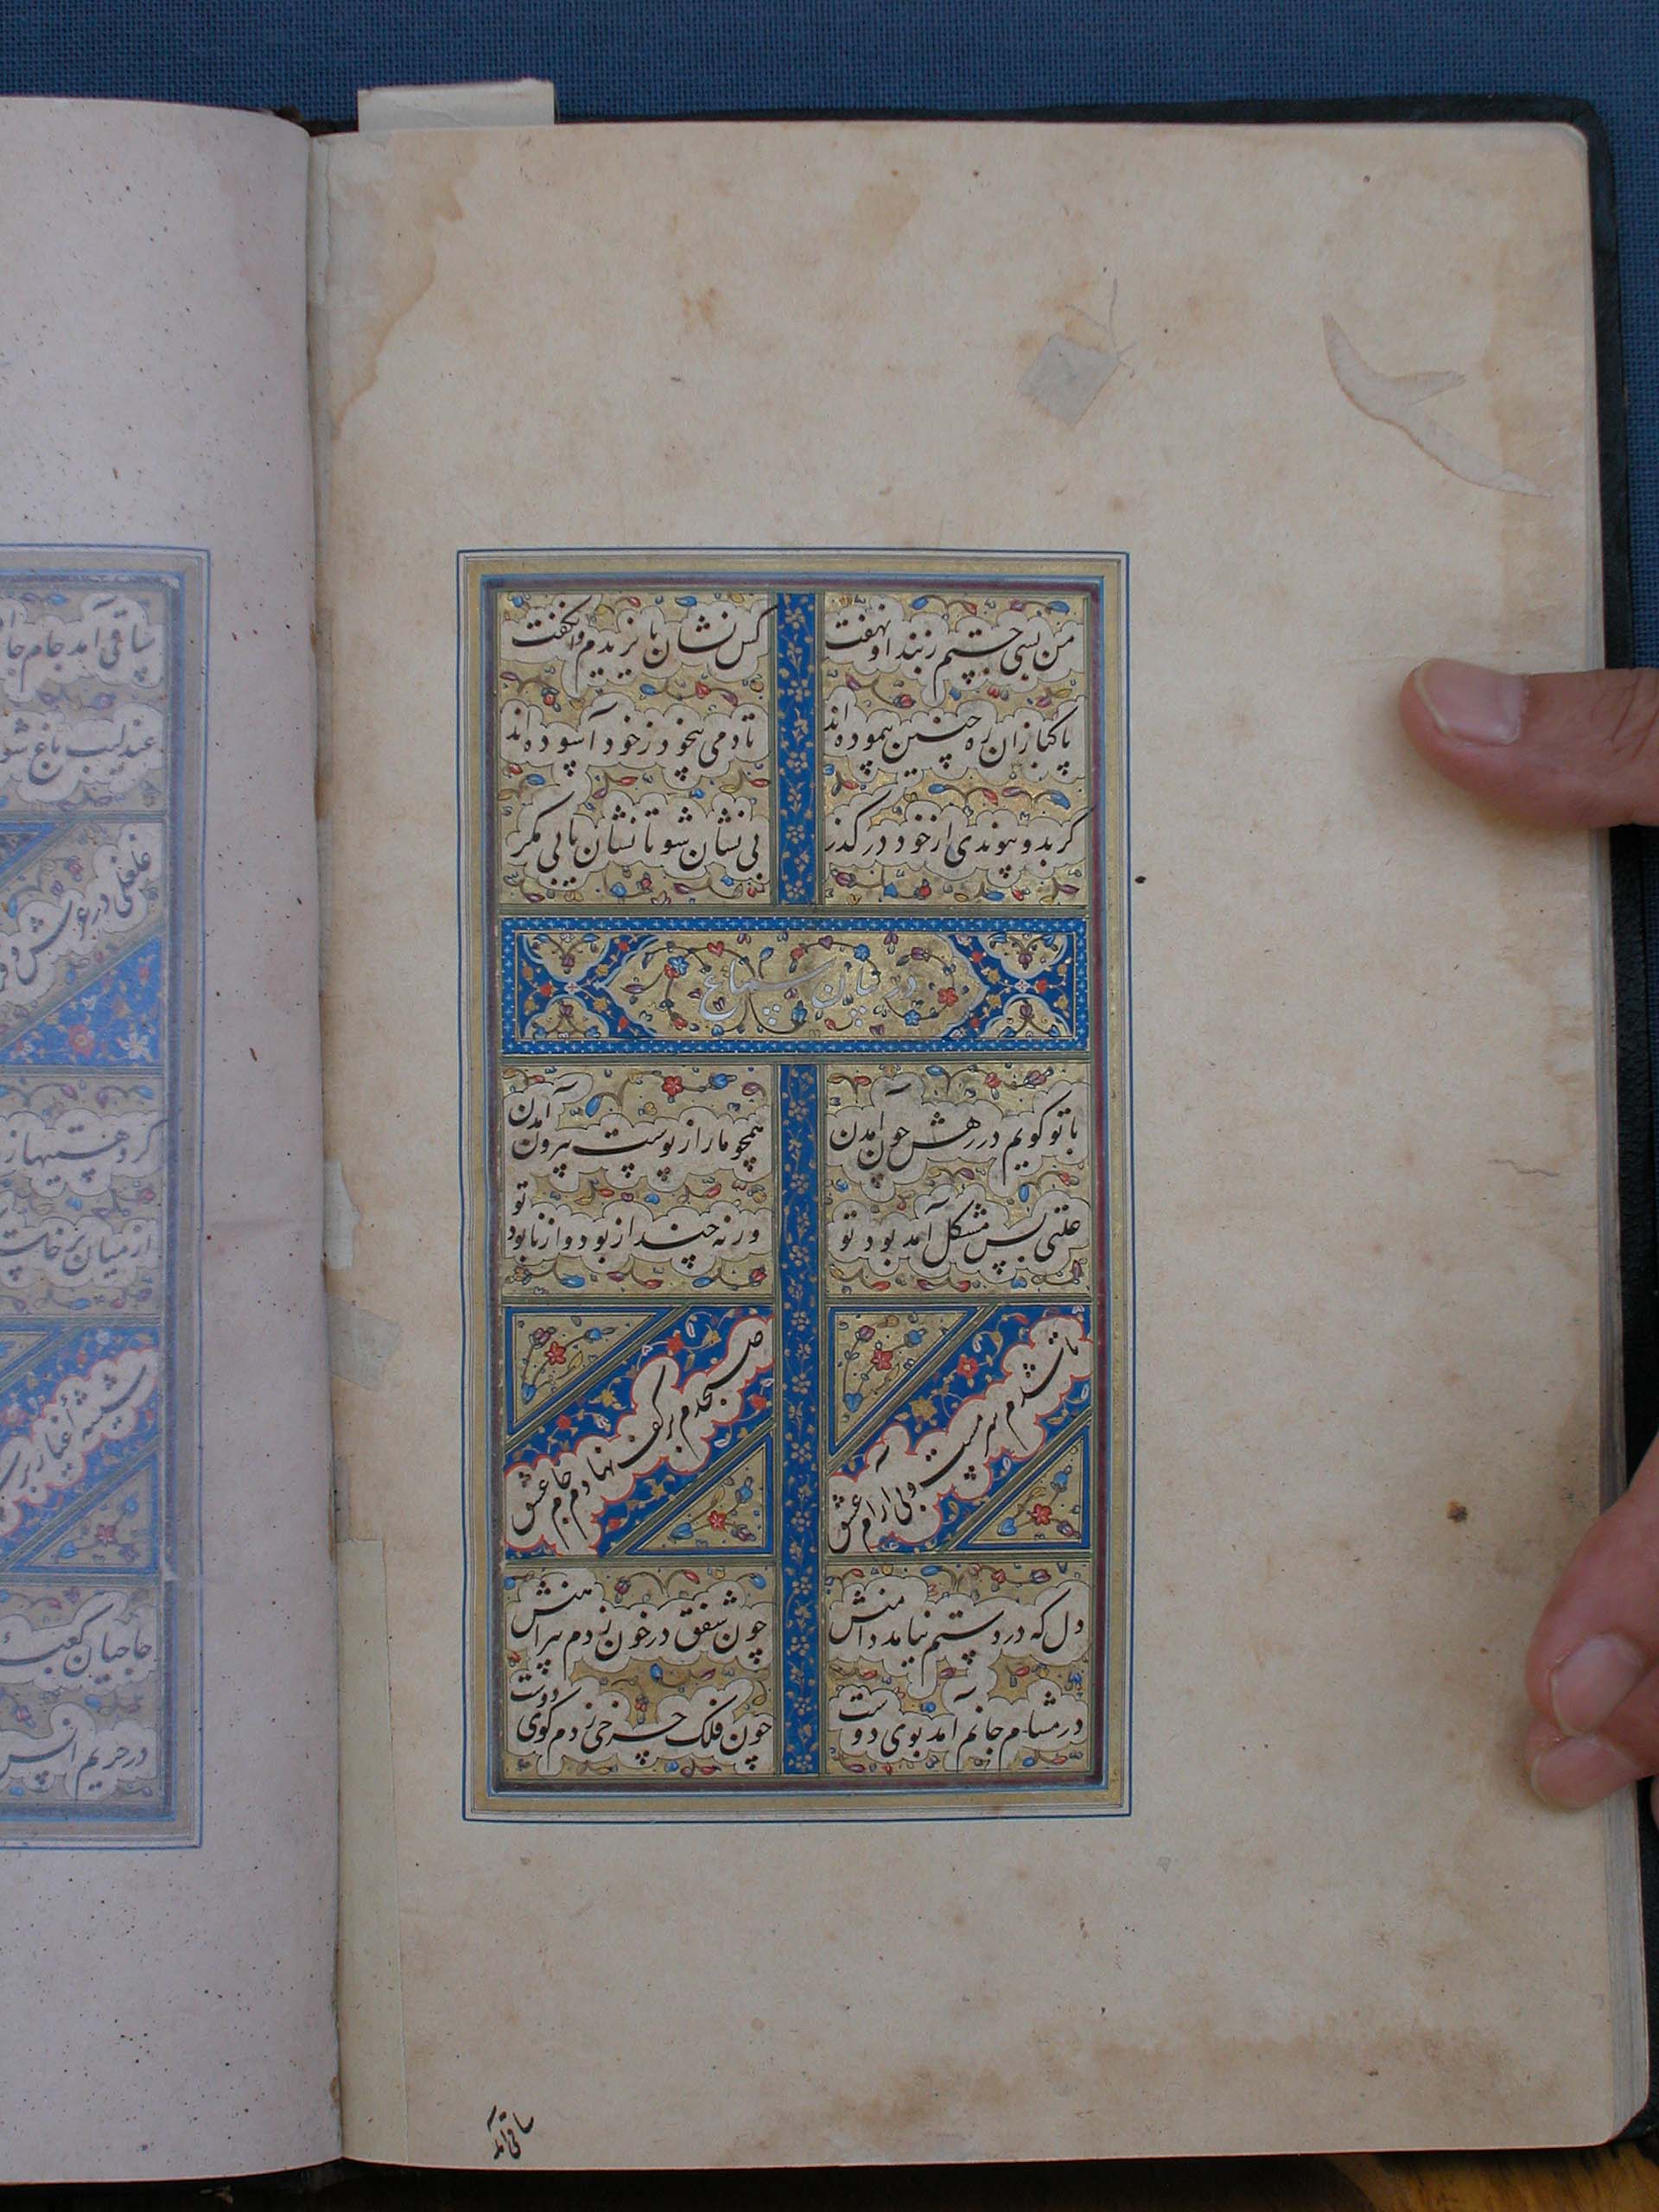 من بسی جستم زبند او نهفت
کس نشان باز یزیدم وانگفت
پاکبازان ره چنین پیموده‌اند
تا دمی بیخود ز خود آسوده‌اند
گر بدو پیوندی از خود در گذر
بی نشان شو تا نشان یابی مگر
در بیان سماع
با تو گویم در رهش چون آمدن
همچو مار از پوست بیرون آمدن
علتی بس مشکل آمد بود تو
ورنه چند از بود و از نابود تو
تا شدم سرمست و بی آرام عشق
صبحدم بر کف نهادم جام عشق
دل که در دستم نیامد دامنش
چون شفق در خون زدم پیراهنش
در مشام جانم آمد بوی دوست
چون فلک چرخی زدم در کوی دوست
ساقی آمد
ساقی آمد جام
عندلیب باغ
غلغلی در عرش و
کرد هستیها
از میان برخاست
شیشه اغیار بر
حاجیان کعبه
در حریم انس